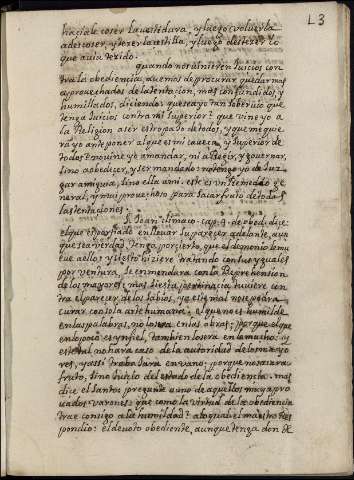 L3
haçiale coser la vestidura, y luego volverla
a descoser, y texer la estilla, y luego destexer lo
que avia texido.
quando nos vinieren Juicios con
tra la obediencia, avemos de procurar quedarnos
aprovechados de la tentacion, mas confundidos, y
humillados, diciendo: que sea yo tan sobervio que
tenga Juicios contra mi Superior? que vine yo a
la Religion a ser estropajo de todos, y que me quie
ra yo anteponer al que es mi caveça, y Superior de
todos? no vine yo a mandar, ni a Regir, y governar,
sino a obedecer, y ser mandado: no tengo yo de Juz
gar a mi guia, sino ella a mi. este es un Remedio ge
neral, y mui provechoso para sacar fruto de todas
las tentaciones.
S. Joan climaco cap. 4. de obed. dice:
el que es porfiado en llevar su parecer adelante, aun
que sea verdad, tenga por cierto, que el demonio le mu
eve a ello: y si esto hiziere tratando con sus yguales
por ventura, se enmendara con la Reprehension
de los mayores, mas si esta pertinacia tuviere con
tra el parecer de los sabios, ya este mal no se podra
curar con sola arte humana. el que no es humilde
en las palabras, no lo sera en las obras; porque el que
en lo poco es ynfiel, tambien lo sera en lo mucho: y
este tal no hara caso de la autoridad de los mayo
res, y assi trabajara en vano: porque no sacara
fruto, sino Juicio del estado de la obediencia. mas
dice el Santo pregunte a uno de aquellos muy apro
vados varones: que como la virtud de la obediencia
trae consigo a la humildad? a lo qual el maestro Res
pondio: el devoto obediente, aunque tenga don de